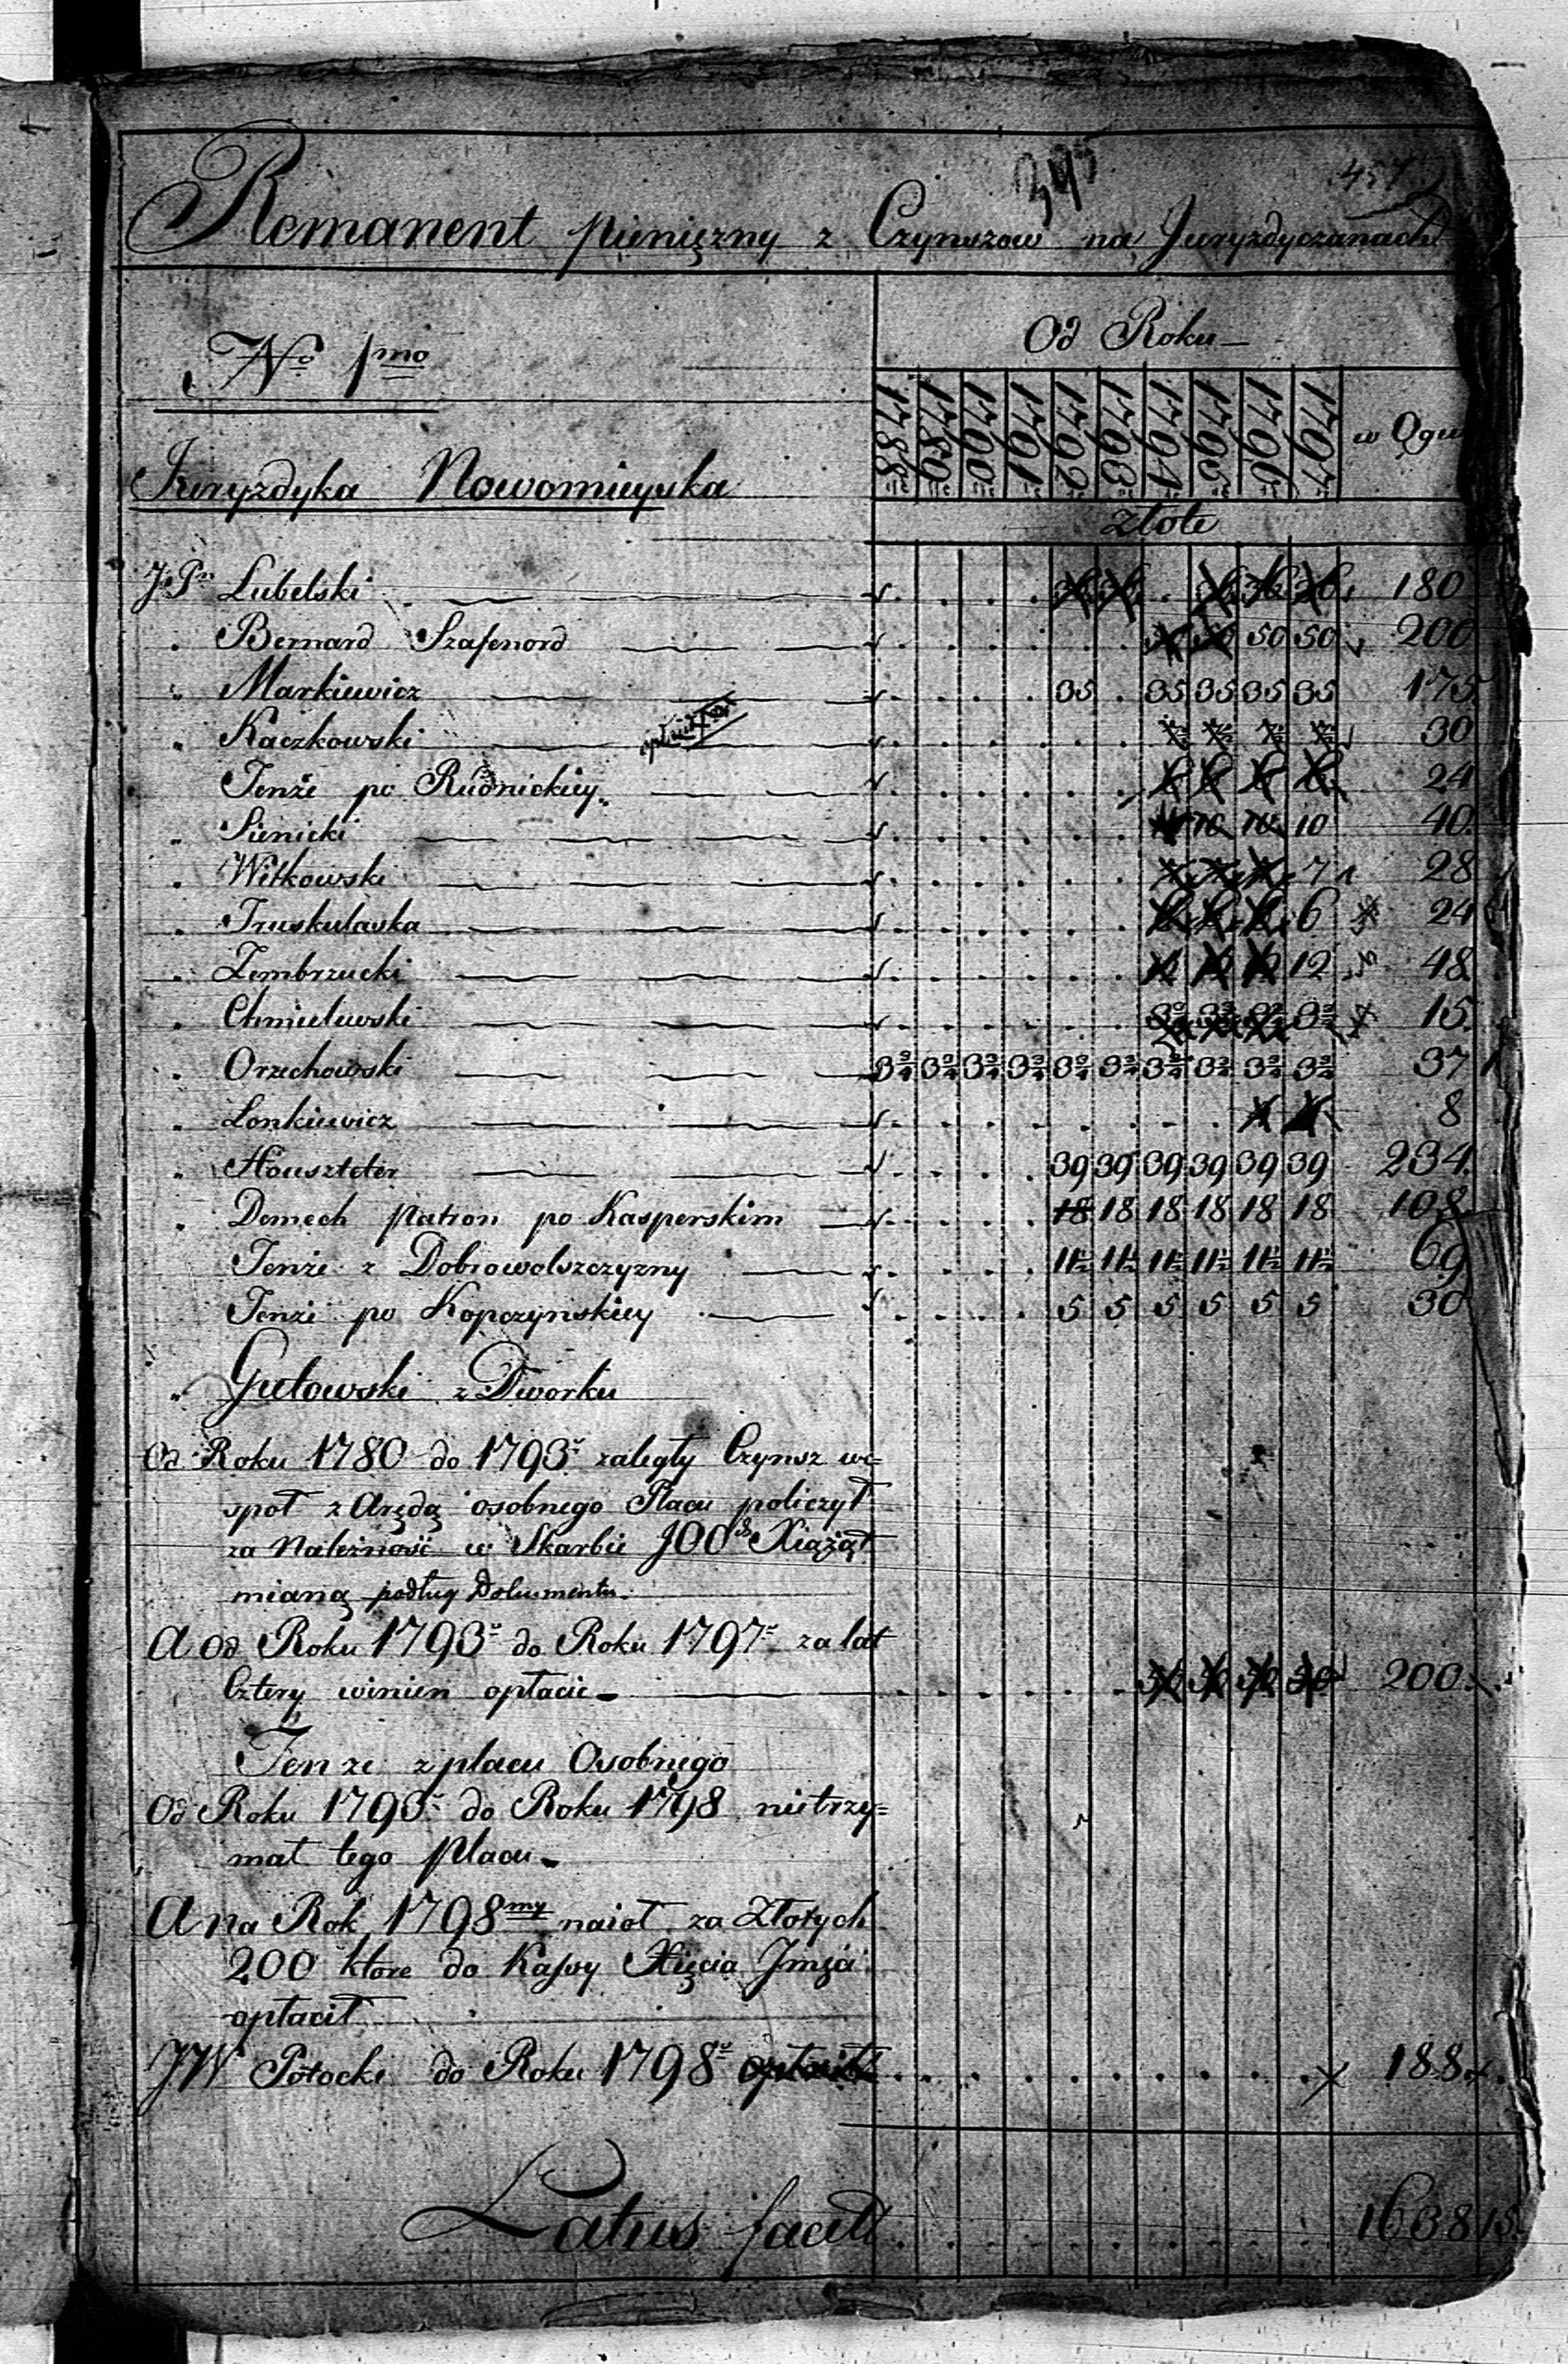 345
457
Remanent pienięzny z Czynszow na Juryzdyczanach
No 1mo
Od Roku
1788 1789 1790 1791 1792 1793 1794 1795 1796 1797 w Ogu
Juryzdyka Nowomieyska
złote
JPn Lubelski 36 36 . 36 36 36 180
" Bernard Szafenord 50 50 50 50 200
" Markiewicz 35 . 35 35 35 35 175
" Kaczkowski 7½ 7½ 7½ 7½ 30
Tenże po Rudnickiey 6 6 6 6 24
" Sienicki 10 10 10 10 40
" Witkowski 7 7 7 7 28
" Truskulaska 6 6 6 6 24
" Zembrzucki 12 12 12 12 48
" Chmielewski 3¾ 3¾ 3¾ 3¾ 15
" Orzechowski 3¾ 3¾ 3¾ 3¾ 3¾ 3¾ 3¾ 3¾ 3¾ 3¾ 37
" Lonkiewicz 4 4 8
" Houszteter 39 39 39 39 39 39 234
" Demech Patron po Kasperskim 18 18 18 18 18 18 108
Tenże z Dobrowolszczyzny 11½ 11½ 11½ 11½ 11½ 11½ 69
Tenże po Kopczynskiey 5 5 5 5 5 5 30
" Gutowski z Dworku
Od Roku 1780 do 1793 zaległy Czynsz we=
społ z Arędą osobnego Placu policzył
za Należność w Skarbie JOO Xiążąt
mianą podług Dokumentu.
A od Roku 1793 do Roku 1797 za lat
Cztery winien opłacic 50 50 50 50 200
Tenże z placu Osobnego
Od Roku 1793 do Roku 1798 nietrzy=
mał tego Placu
A na Rok 1798my naioł za Złotych
200 ktore do Kassy Xięcia Jmści
opłacił
JW Potocki do Roku 1798 188
Latus facit 1638 15